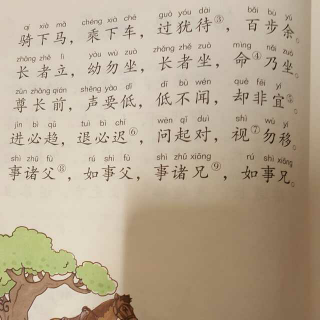 qí xià mǎ chéng xià chē guò yóu dài bǎi bù yú
骑下马，乘下车，过犹待③，百步余。
zhǎng zhě lì yòu wù zuò zhǎng zhě zuò mìng nǎi zuò
长者立，幼勿坐，长者坐，命④乃坐。
zūn zhǎng qián shēng yào dī dī bù wén què fēi yí
尊长前，声要低，低不闻，却非宜⑤。
jìn bì qū tuì bì chí wèn qǐ duì shì wù yí
进必趋，退必迟⑥，问起对，视⑦勿移。
shì zhū fù rú shì fù shì zhū xiōng rú shì xiōng
事诸父⑧，如事父，事诸兄⑨，如事兄。